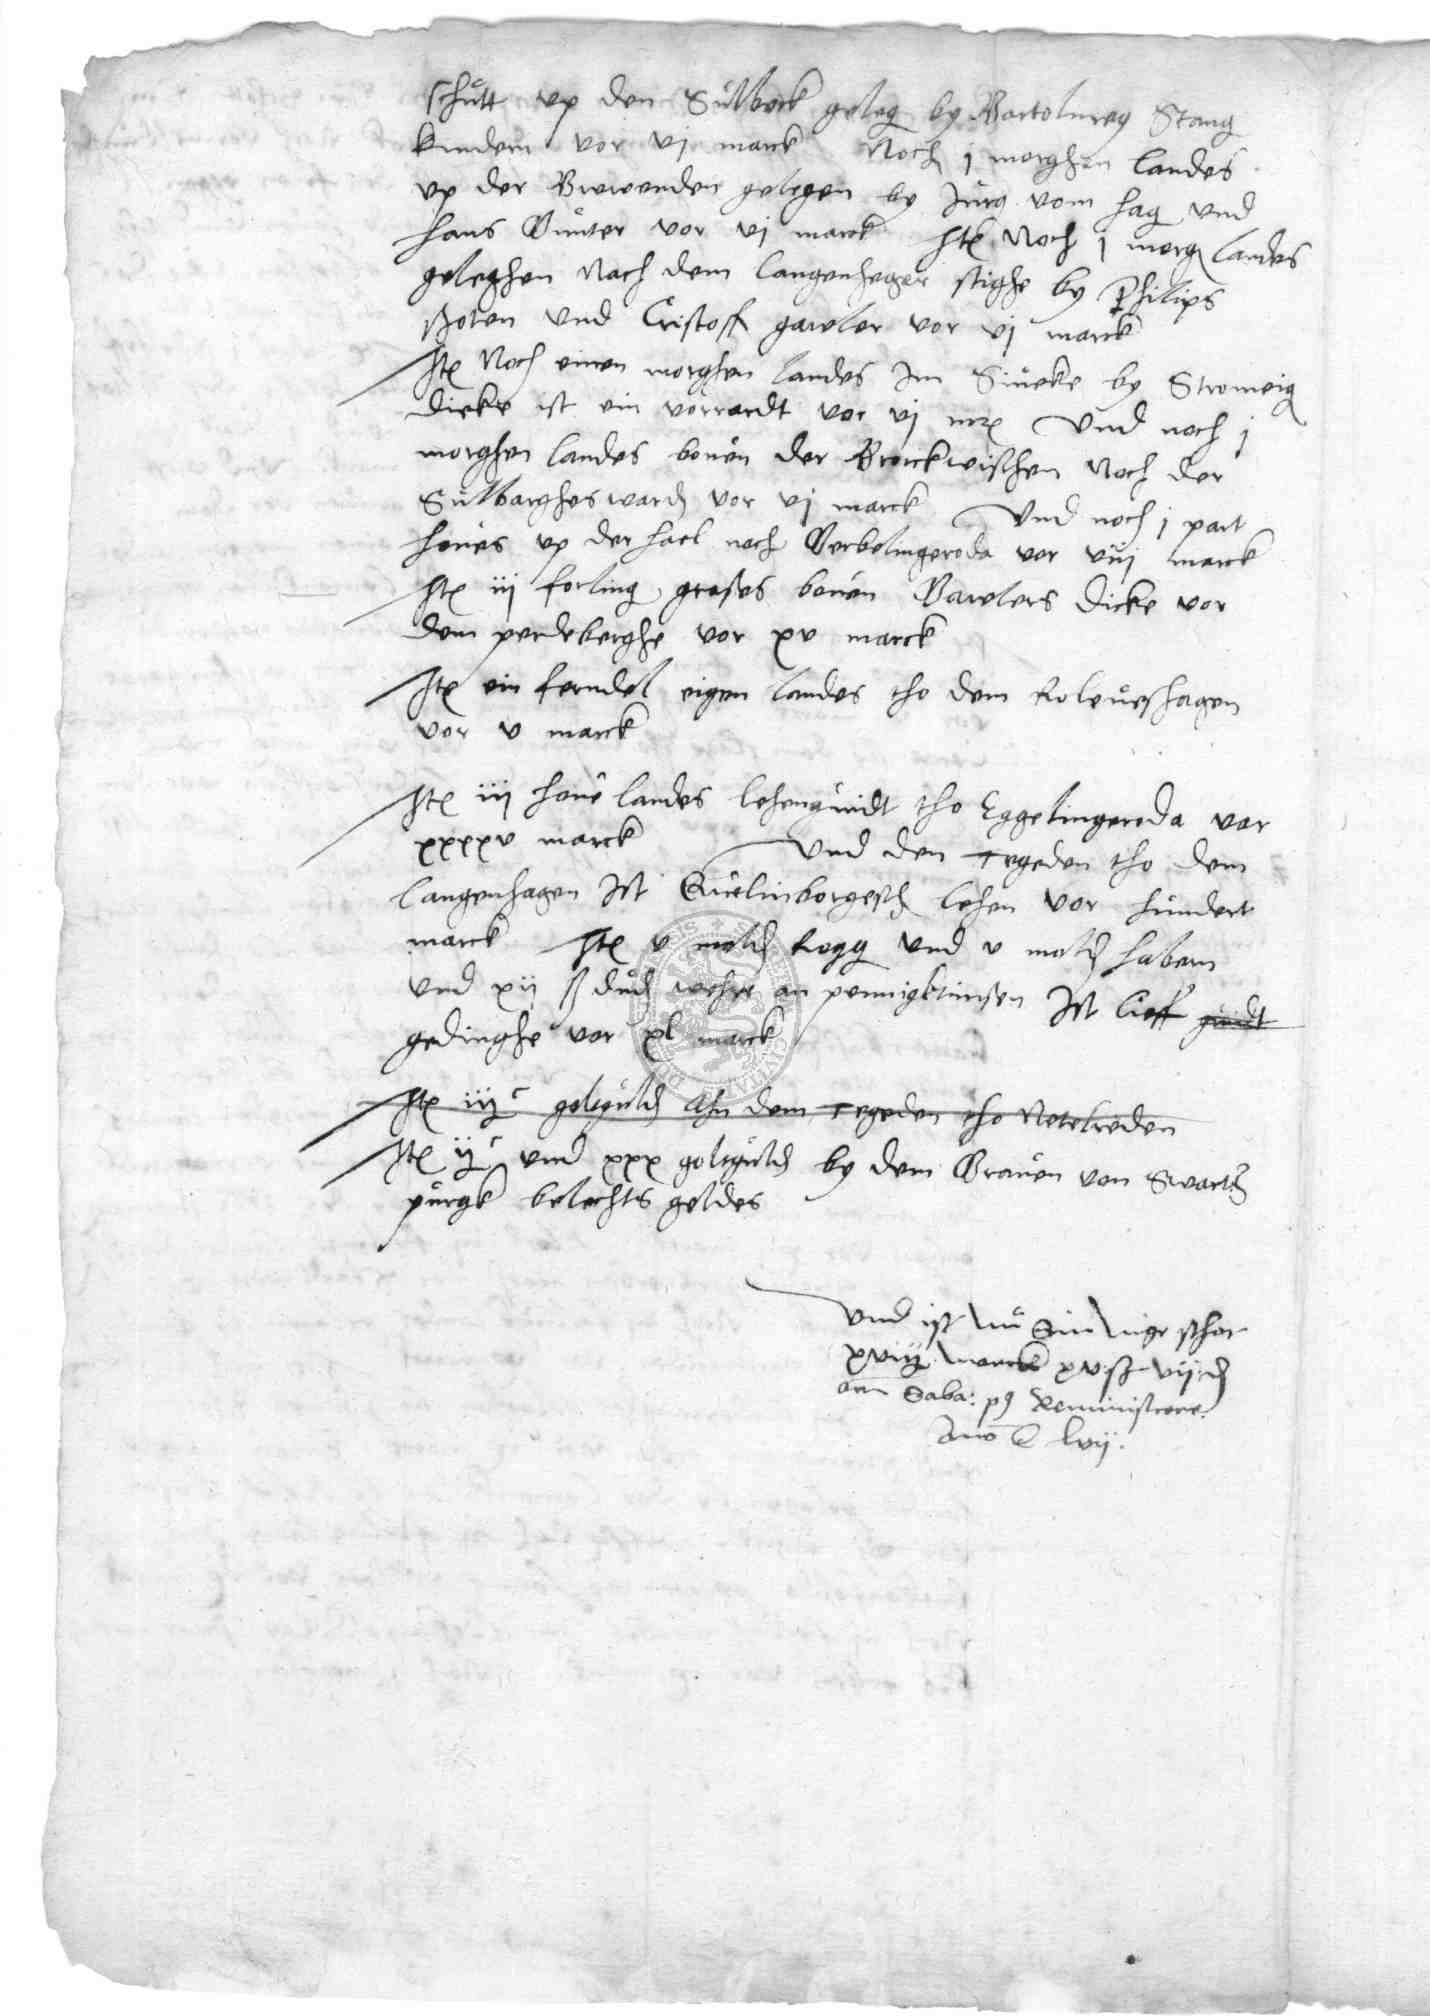 schutt up den Sulbeck geleg by Bartolmeg Stang
kindern vor vj marck Noch j morghen landes
up der gelegen by Jurg vom hag und
hans Gunter vor vj marck Ite Noch j morg landes
geleghen Nach dem langenheger stighe by Philips
Boten und Cristoff gareler vor vj marck
Ite Noch einen morghen landes Jm Sineke by Stromeig
dicke ist ein vorrardt vor vj mr Und noch j
morghen landes boven der Brockwischen Noch der
Sulbarghes vor vj marck Und noch j part
hoves up der hael noch Berbelingeroda vor viij marck
Ite iij forling grases boven Garelers dicke vor
dem perdeberghe vor xv marck
Ite ein ferndel eigen landes tho dem Roleveshagen
vor v marck
Ite iij hove landes lehenguidt tho Eggelingeroda vor
xxxxv marck Und den tegeden tho dem
langenhagen Jst Quelinborgesch lehen vor hundert
marck Ite v mald Rogg und v mald habern
und xij ß dud wehre an pennigktinsen Jst lieff guidt
gedinghe vor xl marck
Ite iij c goltguld Ahn dem tegeden tho Netelreden
Ite ij c und xxx goltguld by dem Graven von Swartz
purgk belechts geldes
Und ist schos
xviij marck xv ß vij d
am Saba: p9 Reminiscere.
Anno lvij.